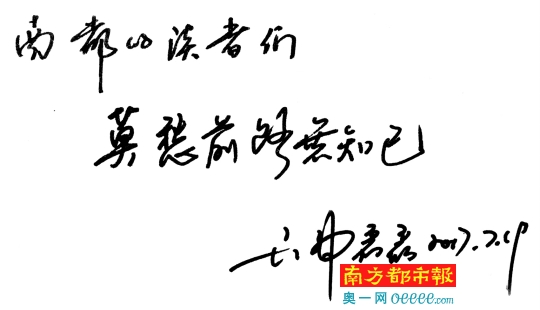 南都的读者们
莫愁前路無知己
六神磊磊 2017.7.19
南方都市報
奥一网 oeeee.com